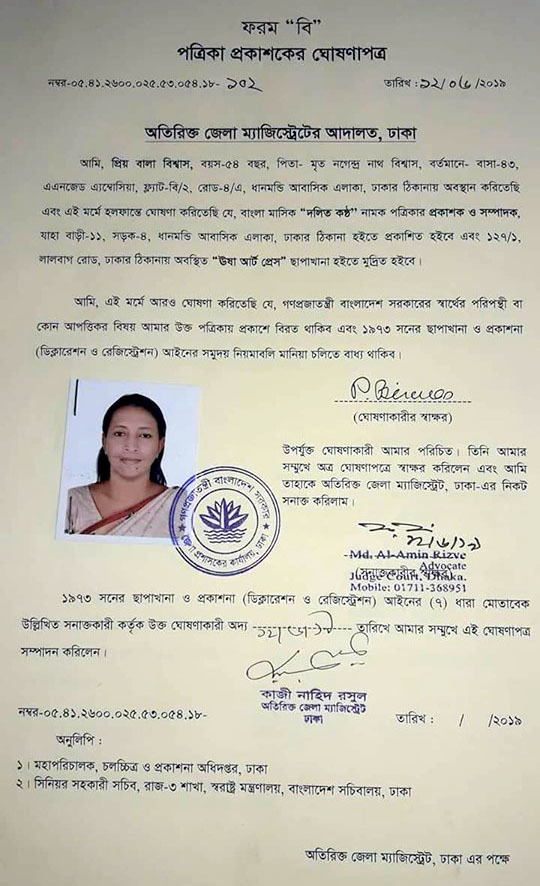 ফরম “বি”
পত্রিকা প্রকাশকের ঘোষণাপত্র
নম্বর-০৫.৪১.২৬০০.০২৫.৫৩.০৫৪.১৮- ১০২ তারিখ : ১২/০৬/২০১৯
অতিরিক্ত জেলা ম্যাজিস্ট্রেটের আদালত, ঢাকা
আমি, প্রিয় বালা বিশ্বাস, বয়স-৫৪ বছর, পিতা- মৃত নগেন্দ্র নাথ বিশ্বাস, বর্তমানে- বাসা-৪৩,
এএনজেড এ্যম্বোসিয়া, ফ্ল্যাট-বি/২, রোড-৪/এ, ধানমন্ডি আবাসিক এলাকা, ঢাকার ঠিকানায় অবস্থান করিতেছি
এবং এই মর্মে হলফান্তে ঘোষণা করিতেছি যে, বাংলা মাসিক “দলিত কন্ঠ” নামক পত্রিকার প্রকাশক ও সম্পাদক,
যাহা বাড়ী-১১, সড়ক-৪, ধানমন্ডি আবাসিক এলাকা, ঢাকার ঠিকানা হইতে প্রকাশিত হইবে এবং ১২৭/১,
লালবাগ রোড, ঢাকার ঠিকানায় অবস্থিত “ঊষা আর্ট প্রেস” ছাপাখানা হইতে মুদ্রিত হইবে।
আমি, এই মর্মে আরও ঘোষণা করিতেছি যে, গণপ্রজাতন্ত্রী বাংলাদেশ সরকারের স্বার্থের পরিপন্থী বা
কোন আপত্তিকর বিষয় আমার উক্ত পত্রিকায় প্রকাশে বিরত থাকিব এবং ১৯৭৩ সনের ছাপাখানা ও প্রকাশনা
(ডিক্লারেশন ও রেজিস্ট্রেশন) আইনের সমুদয় নিয়মাবলি মানিয়া চলিতে বাধ্য থাকিব।
P. Biswas
(ঘোষণাকারীর স্বাক্ষর)
উপর্যুক্ত ঘোষণাকারী আমার পরিচিত। তিনি আমার
সম্মুখে অত্র ঘোষণাপত্রে স্বাক্ষর করিলেন এবং আমি
তাহাকে অতিরিক্ত জেলা ম্যাজিস্ট্রেট, ঢাকা-এর নিকট
সনাক্ত করিলাম।
গণপ্রজাতন্ত্রী বাংলাদেশ সরকার
জেলা প্রশাসকের কার্যালয়, ঢাকা
১২/৬/১৯
Md. Al-Amin Rizve
Advocate
(সনাক্তকারীর স্বাক্ষর)
Judge Court, Dhaka.
Mobile: 01711-368951
১৯৭৩ সনের ছাপাখানা ও প্রকাশনা (ডিক্লারেশন ও রেজিস্ট্রেশন) আইনের (৭) ধারা মোতাবেক
উল্লিখিত সনাক্তকারী কর্তৃক উক্ত ঘোষণাকারী অদ্য তারিখে আমার সম্মুখে এই ঘোষণাপত্র
সম্পাদন করিলেন।
কাজী নাহিদ রসুল
অতিরিক্ত জেলা ম্যাজিস্ট্রেট
ঢাকা
নম্বর-০৫.৪১.২৬০০.০২৫.৫৩.০৫৪.১৮- তারিখ : / /২০১৯
অনুলিপি :
১। মহাপরিচালক, চলচ্চিত্র ও প্রকাশনা অধিদপ্তর, ঢাকা
২। সিনিয়র সহকারী সচিব, রাজ-৩ শাখা, স্বরাষ্ট্র মন্ত্রণালয়, বাংলাদেশ সচিবালয়, ঢাকা
অতিরিক্ত জেলা ম্যাজিস্ট্রেট, ঢাকা এর পক্ষে